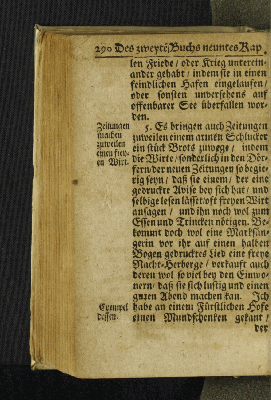 290 Des zweyten Buchs neuntes Kap.
len Friede / oder Krieg unterein-
ander gehabt / indem sie in einen
feindlichen Hafen eingelauffen /
oder sonsten unversehens auf
offenbarer See überfallen wor-
den.
Zeitungen
machen
zuweilen
einen frey-
en Wirt.
5. Es bringen auch Zeitungen
zuweilen einem armen Schlucker
ein stück Brots zuwege / indem
die Wirte / sonderlich in den Dör-
fern der neuen Zeitungen so begie-
rig seyn / daß sie einem / der eine
gedruckte Avise bey sich hat / und
selbige lesen lässt / oft freyen Wirt
ansagen / und ihn noch wol zum
Essen und Trincken nötigen. Be-
kommt doch wol eine Marksän-
gerin vor ihr auf einen halben
Bogen gedrucktes Lied eine freye
Nacht-Herberge / verkauft auch
deren wol so viel bey den Einwo-
nern / daß sie sich lustig und einen
guten Abend machen kan. Ich
Exempel
dessen.
habe an einem Fürstlichen Hofe
einen Mundschenken gekant /
der